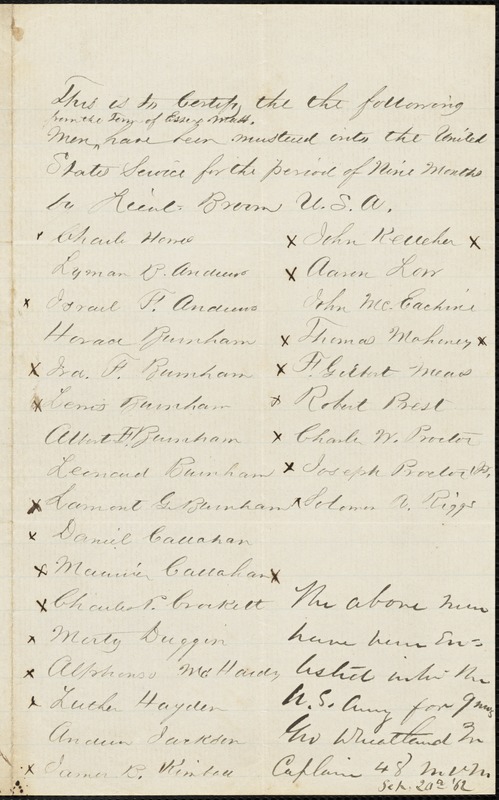 This is to Certify, the the following
from the Town of Essex Mass.
Men, have been mustered into the United
States Service for the period of Nine Months
by Lieut. Broom U.S.A.
x Charls Howe
Lyman B. Andrews
x Israel F. Andrews
Horace Burnham
x Ira. F. Burnham
x Lewis Burnham
Albert F Burnham
Leonard Burnham
x Lamont G. Burnham
x Daniel Callahan
x Maurice Callahan x
x Charles P. Crockett
x Morty Duggin
x Alphonso Mc Hardy
x Luther Hayden
Andrew Jackson
x James B. Kimball
x John Kelleher x
x Aaron Low
John Mc. Eachine
x Thomas Mahoney x
x F. Gilbert Mears
x Robert Prest
x Charls W. Proctor
x Joseph Proctor Jr.
x Solomon A. Riggs
The above men
have been En-
listed into the
U.S. Army for 9 mos
Geo Wheatland Jr
Captain 48 M V M
Sept. 20th '62